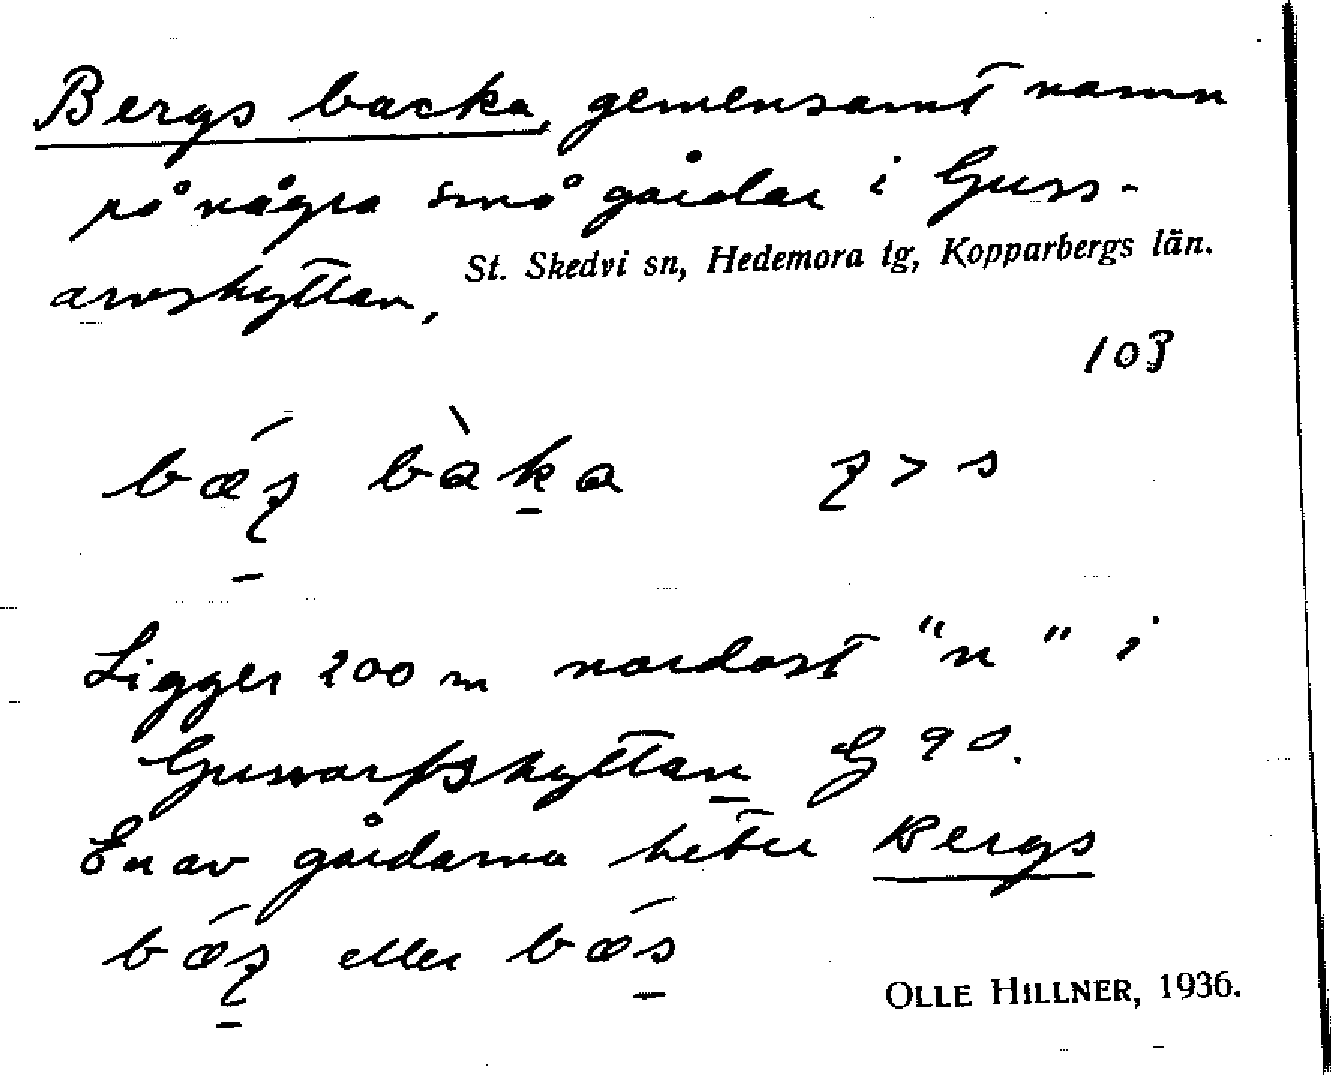 Bergs backa, gemensamt namn
på några små gårdar i Guss-
arvshyttan,
St. Skedvi sn, Hedemora tg, Kopparbergs län.
103
bǽʂ bàka ʂ > s
Ligger 200 m nordost "n" i
Gussarfshyttan G 90.
En av gårdarna heter Bergs
bǽʂ eller bǽs
OLLE HILLNER, 1936.